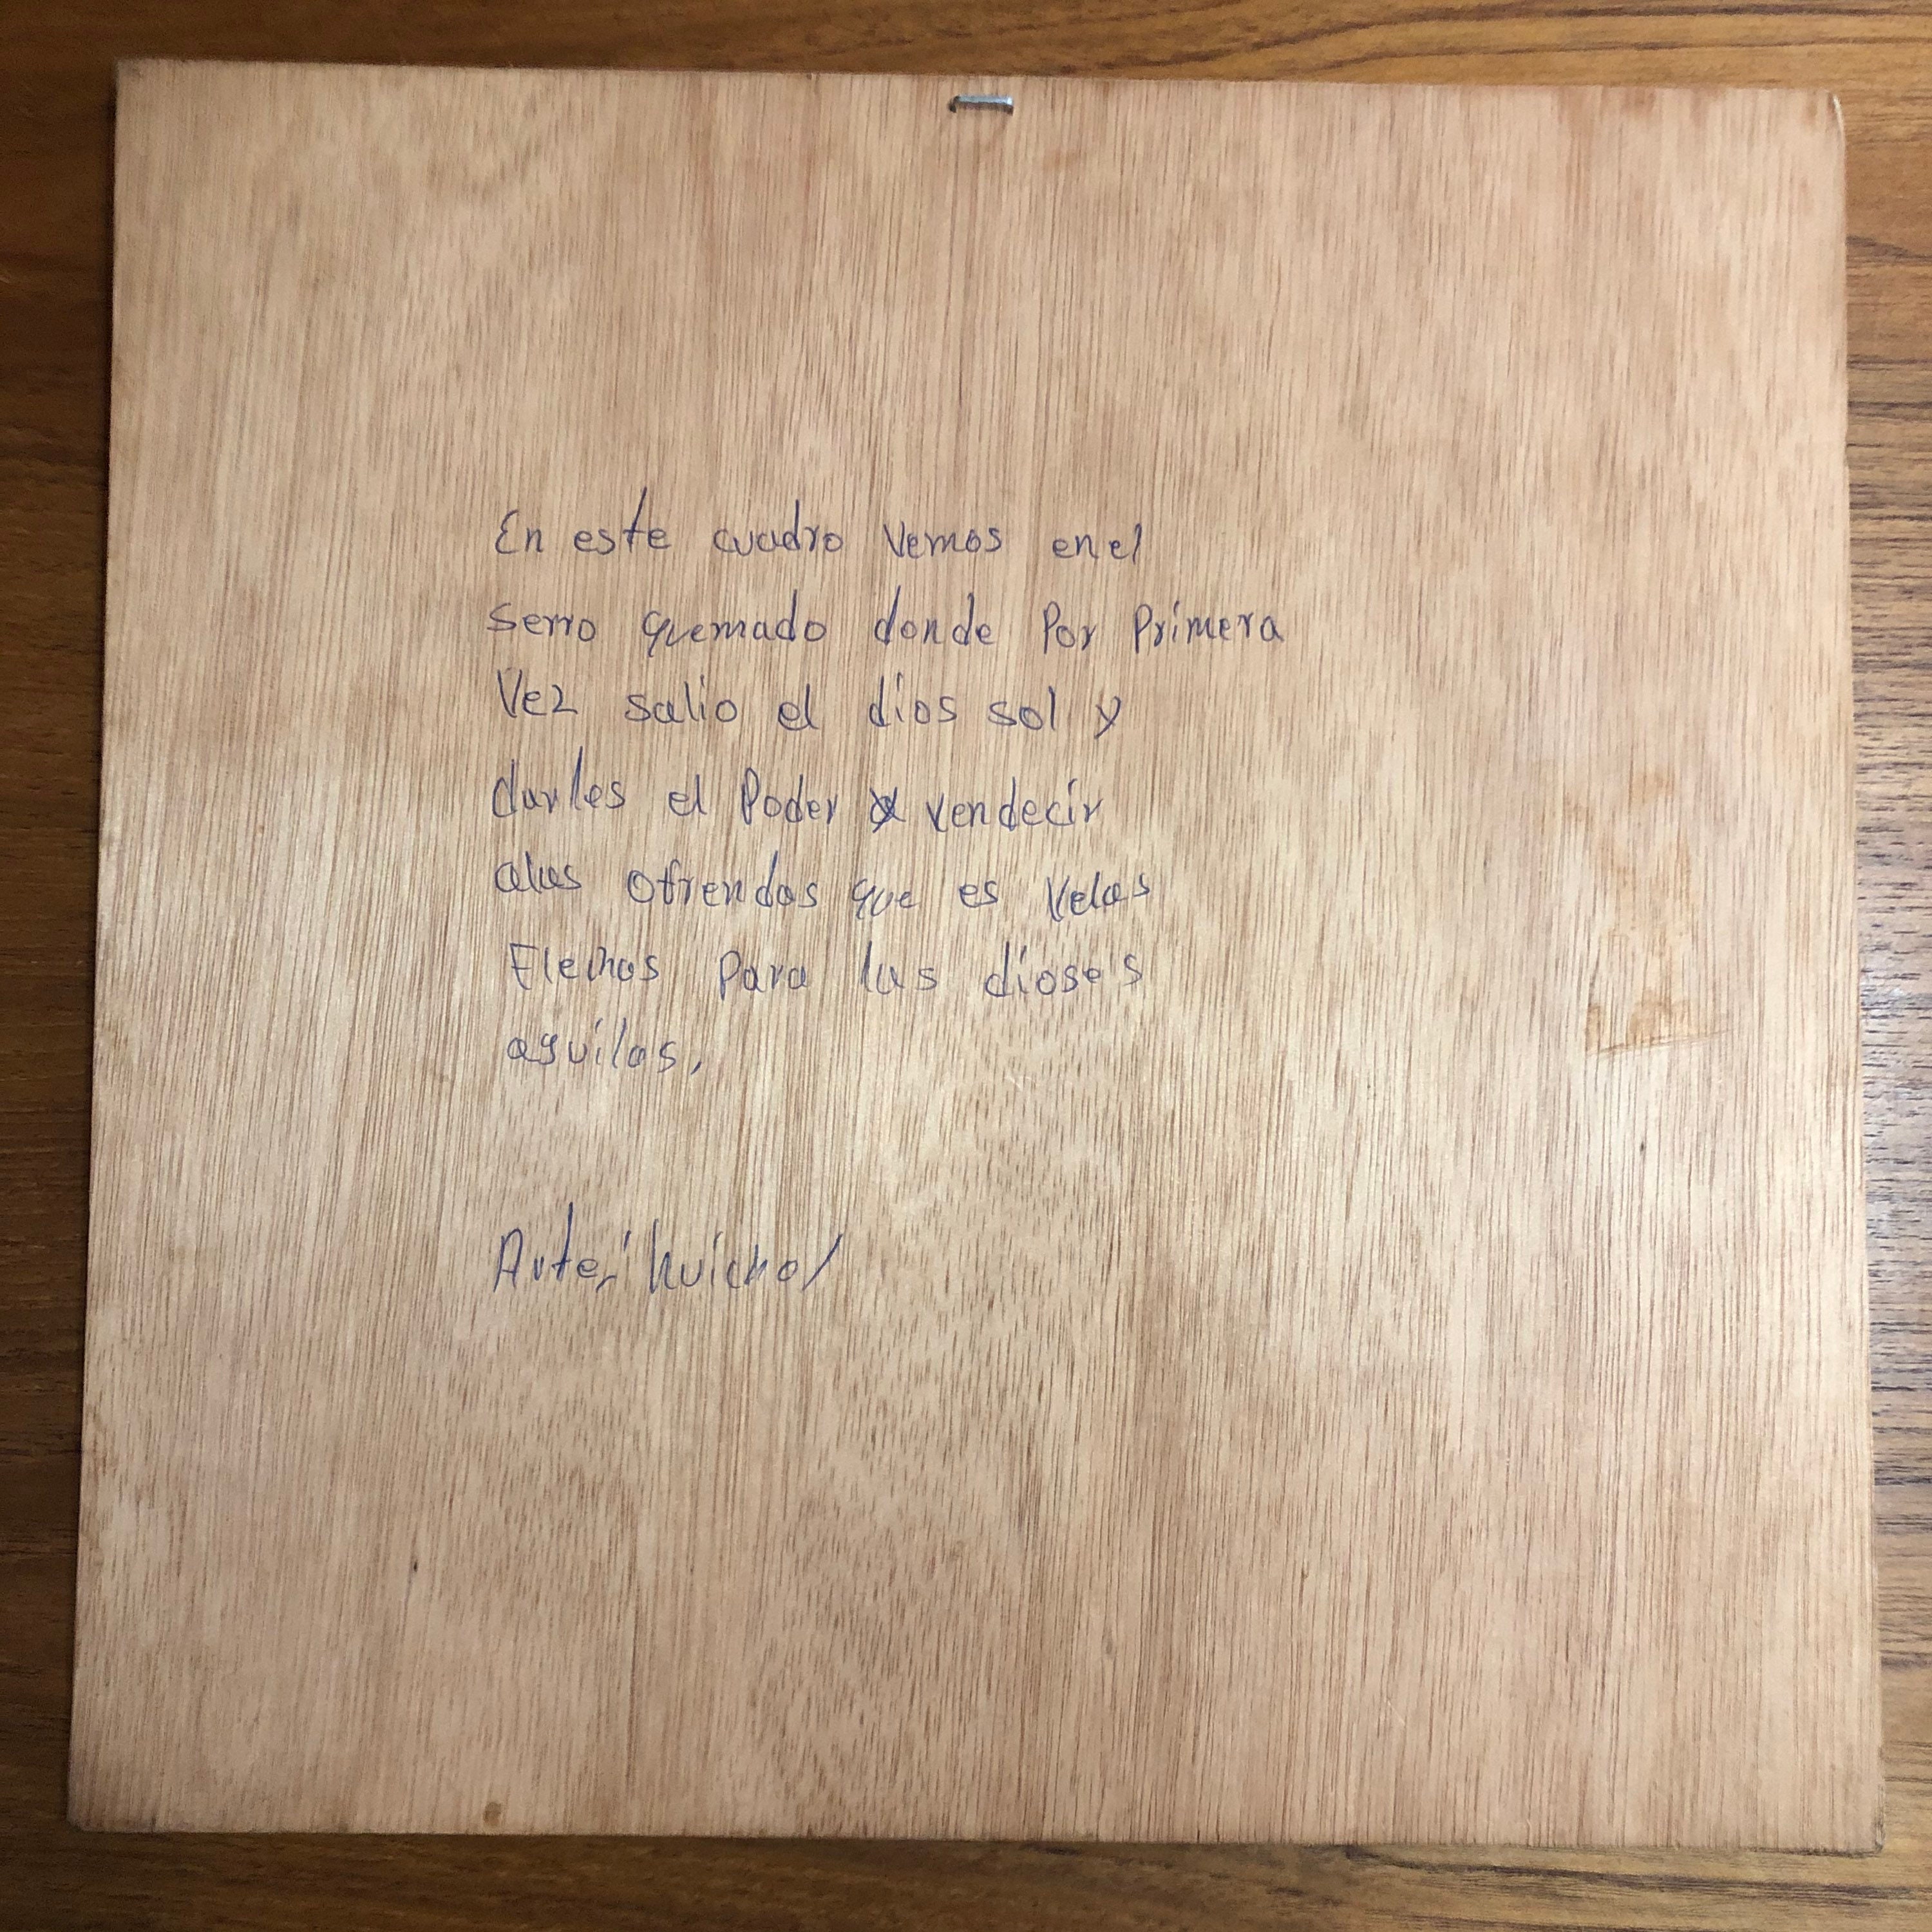 En este cuadro vemos enel
serro quemado donde Por Primera
Vez salio el dios sol y
darles el Poder y vendecir
alas ofrendas que es velas
Flechas para las dioses
aguilas,
Arte, huichol